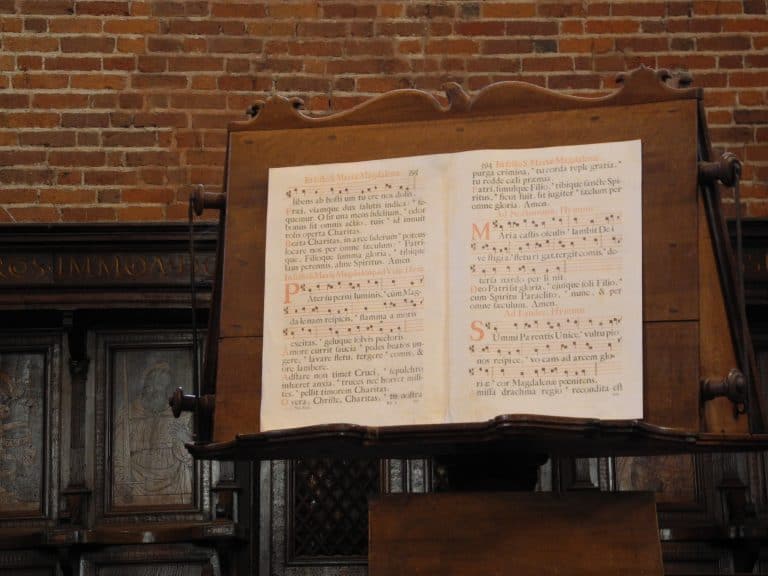 In festo S. Mariæ Magdalenæ. 193
libens ab hosti um tu ere nos dolis.
Fratri, suumque
quesumus. O sit una mens fidelium, odor
bonus sit omnis actio, ruis id invisit
rolis operta Charitas.
Beata Charitas, in arce siderum potens
locare nos per omne sæculum. Patri-
que, Filioque summa gloria, tibique
laus perennis, alme Spiritus. Amen
In festo S. Mariæ Magdalenæ ad Vesp. Hymn.
PAter su perni luminis, cùm Mag-
da lenam respicis, flammas a moris
excitas, geluque solvis pectoris
Amore currit saucia pedes beatos un-
gere, lavare fletu, tergere comis, &
ore lambere.
Adstare non timet Cruci, sepulchro
inhæret anxia, truces nec horret mili-
tes, pellit timorem Charitas.
O vera, Christe, Charitas, tu nostra
194 In festo S. Mariæ Magdalenæ
purga crimina, tu corda reple gratia,
tu redde cæli præmia.
Patri, simulque Filio, tibique sancte Spi-
ritus, sicut fuit, sit jugiter sæclum per
omne gloria. Amen.
Ad Nocturnum, Hymnus.
MAria castis osculis lambit De i
ve stigia, fletu ri gat, tergit comis, de-
tersa nardo per li nit
Deo Patri sit gloria, ejusque soli Filio,
cum Spiritu Paraclito, nunc, & per
omne sæculum. Amen.
Ad Laudes, Hymnus.
SUmmi Pa rentis Unice, vultu pio
nos respice, vo cans ad arcem glo-
ri æ cor Magdalenæ pœnitens.
Amissa drachma regio recondita est